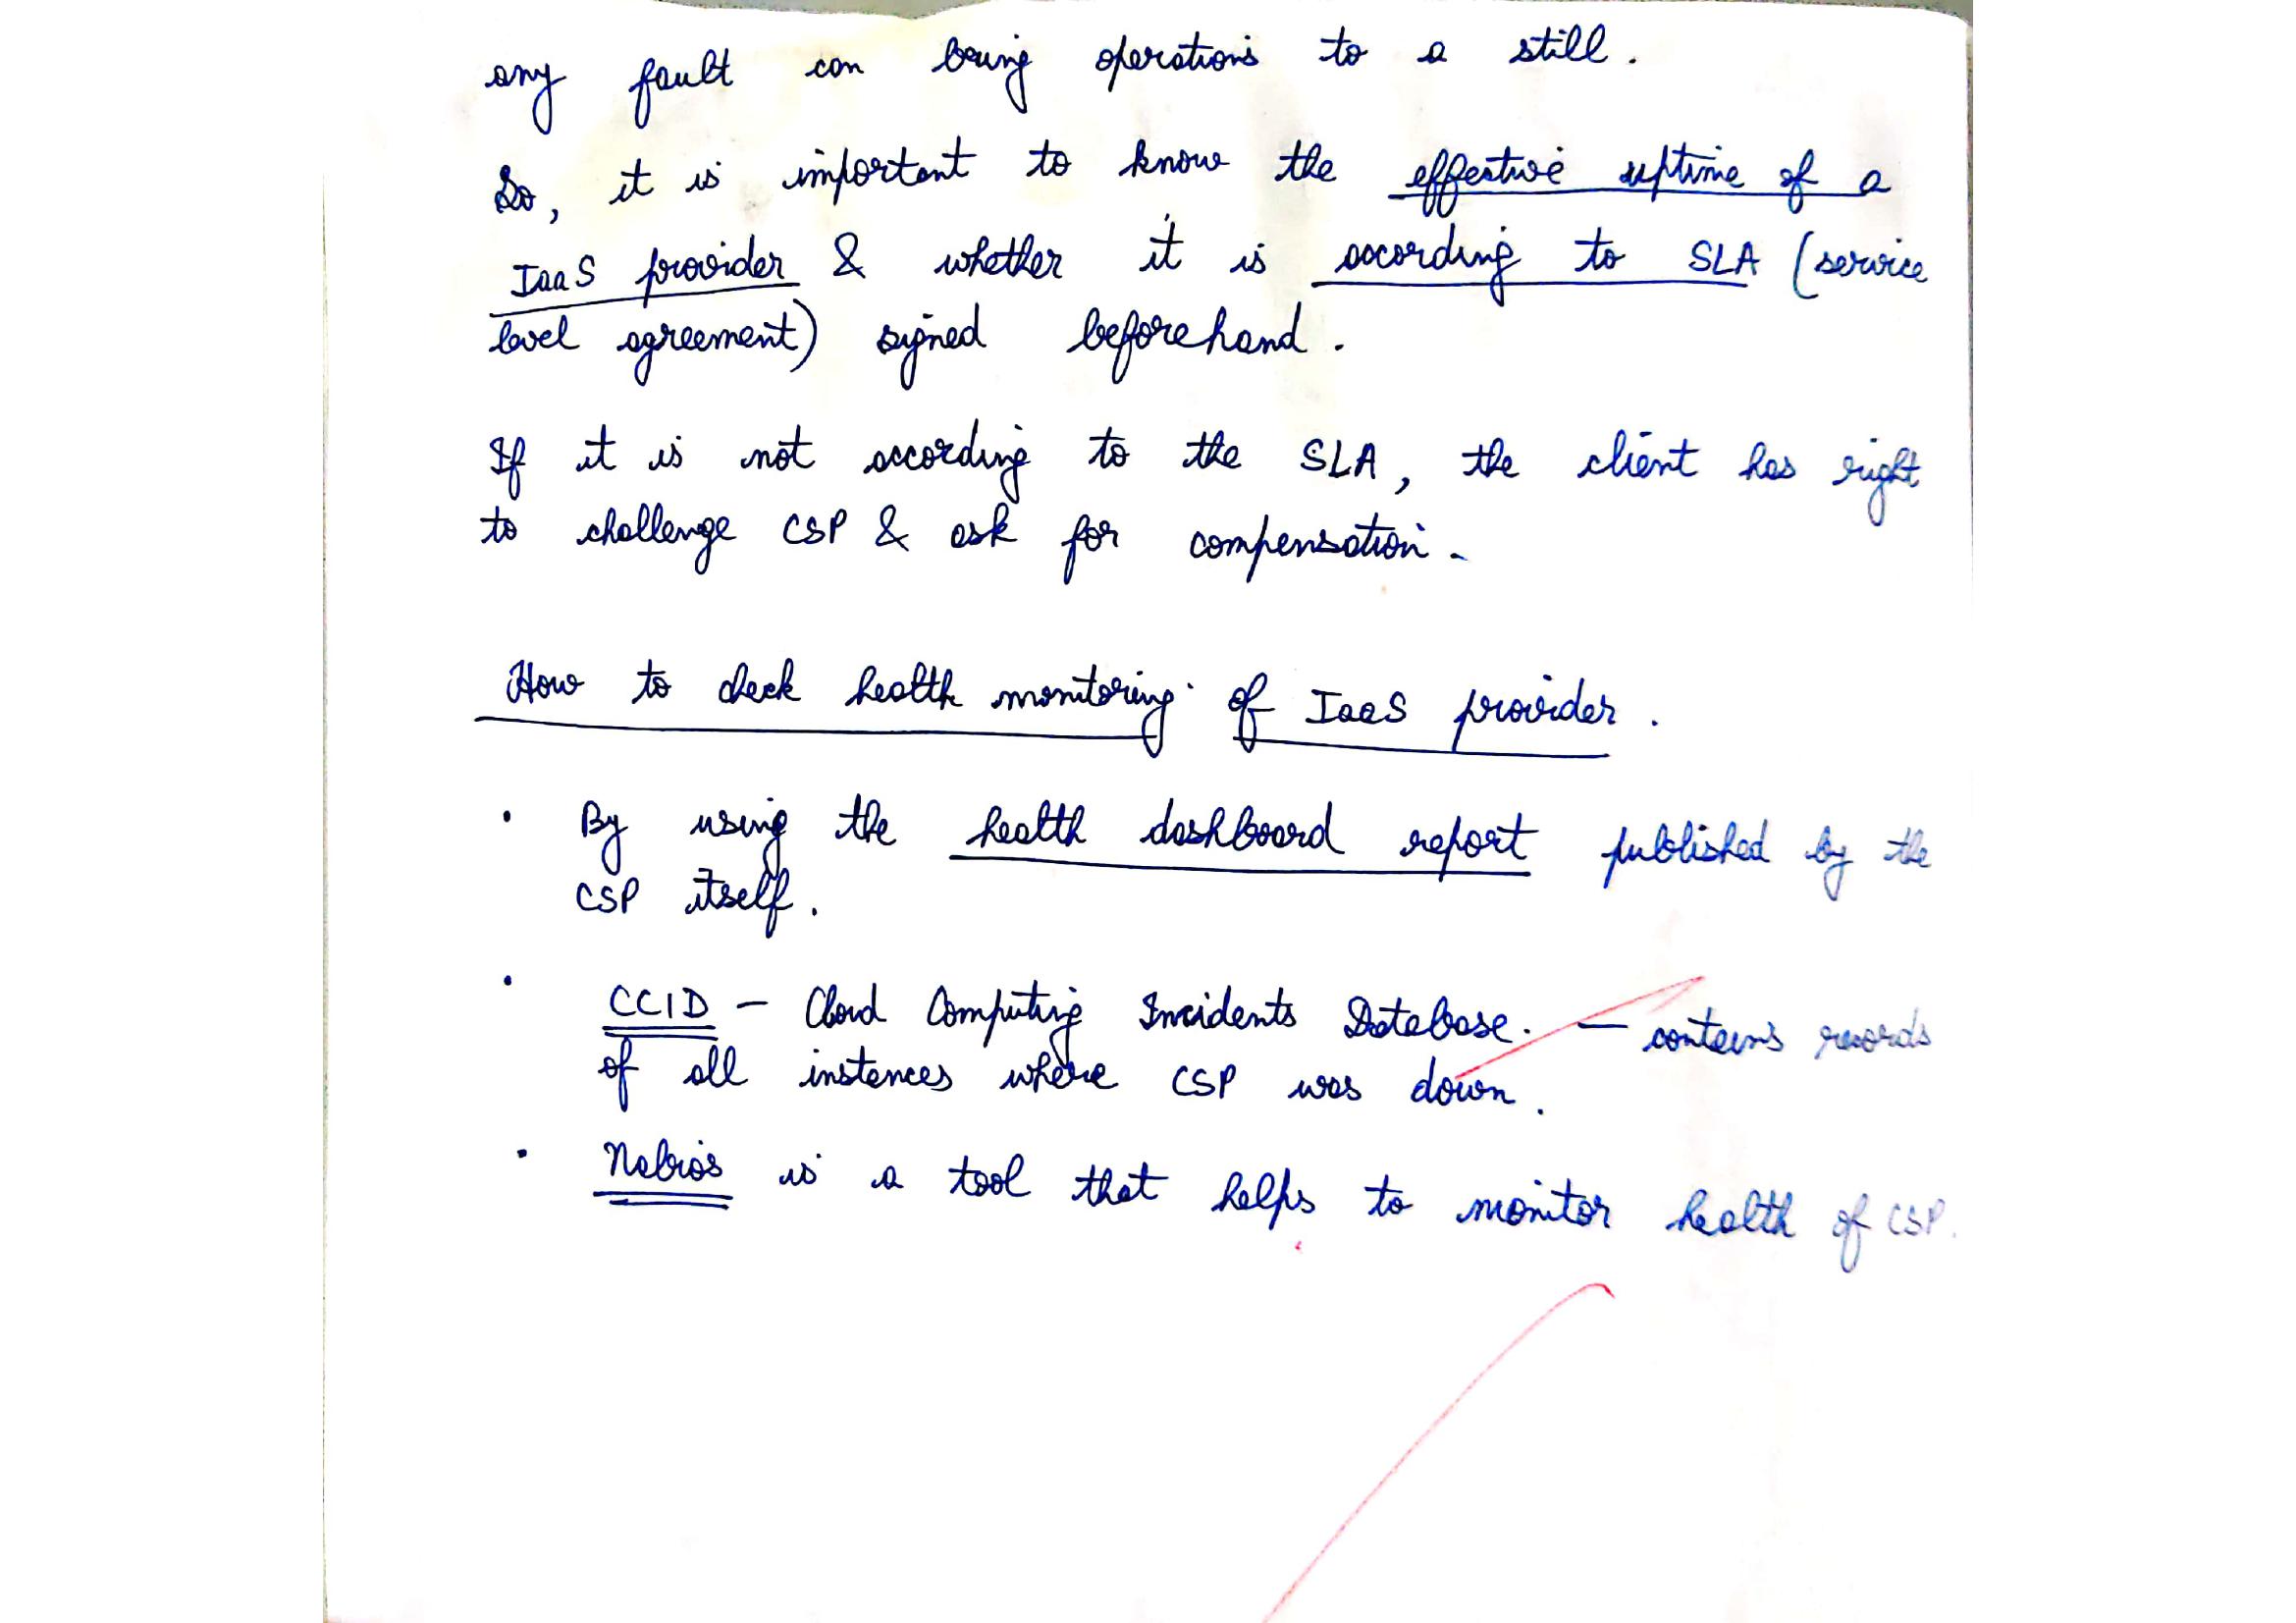 any fault can bring operations to a still.
So, it is important to know the effective uptime of a
IaaS provider & whether it is according to SLA (service
level agreement) signed beforehand.
If it is not according to the SLA, the client has right
to challenge CSP & ask for compensation.
How to check health monitoring of IaaS provider.
• By using the health dashboard report published by the
CSP itself.
• CCID - Cloud Computing Incidents Database. - contains records
of all instances where CSP was down.
• Nabios is a tool that helps to monitor health of CSP.